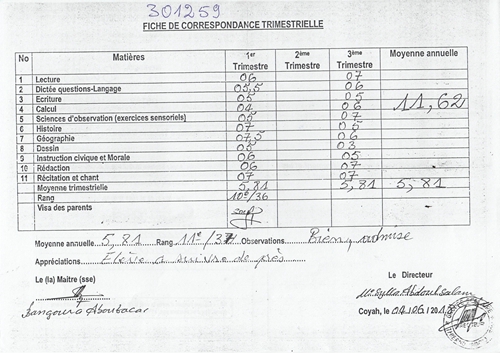 301259
FICHE DE CORRESPONDANCE TRIMESTRIELLE
No Matières 1er Trimestre 2ème Trimestre 3ème Trimestre Moyenne annuelle
1 Lecture 06 07
2 Dictée questions-Langage 05,5 06
3 Ecriture 05 05 11,62
4 Calcul 04 06
5 Sciences d'observation (exercices sensoriels) 05 07
6 Histoire 07 05
7 Géographie 07,5 06
8 Dessin 05 03
9 Instruction civique et Morale 06 05
10 Rédaction 06 07
11 Récitation et chant 07 07
Moyenne trimestrielle 5,81 5,81 5,81
Rang 10e/36
Visa des parents
Moyenne annuelle 5,81 Rang 11e/37 Observations admise
Appréciations Elève a suivre de près
Le (la) Maitre (sse) Le Directeur
Bangoura Aboubacar Mr Sylla Abdoul Salam
Coyah, le 04/06/201